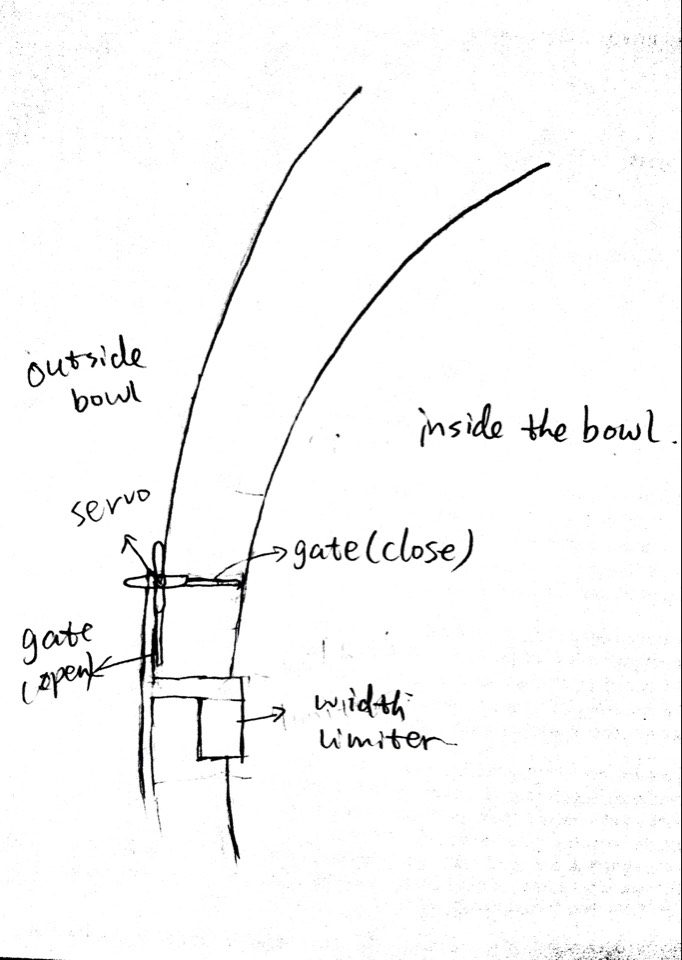 outside
bowl
inside the bowl.
servo
gate (close)
gate
(open)
width
limiter